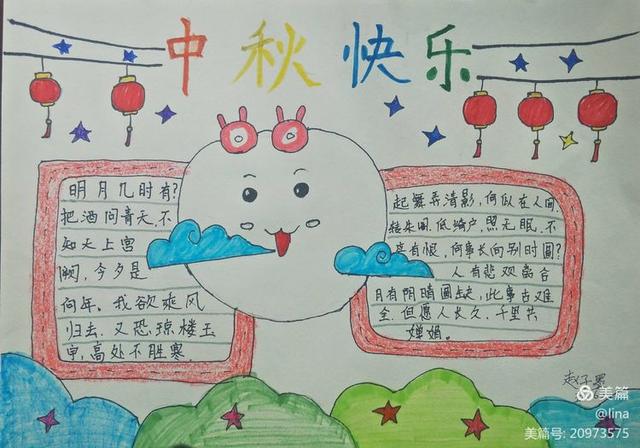 中秋快乐
明月几时有?
把酒问青天,不
知天上宫
阙,今夕是
何年。我欲乘风
归去,又恐琼楼玉
宇,高处不胜寒
起舞弄清影,何似在人间,
转朱阁,低绮户,照无眠,不
应有恨,何事长向别时圆?
人有悲欢离合
月有阴晴圆缺,此事古难
全,但愿人长久,千里共
婵娟。
美篇
@lina
美篇号:20973575